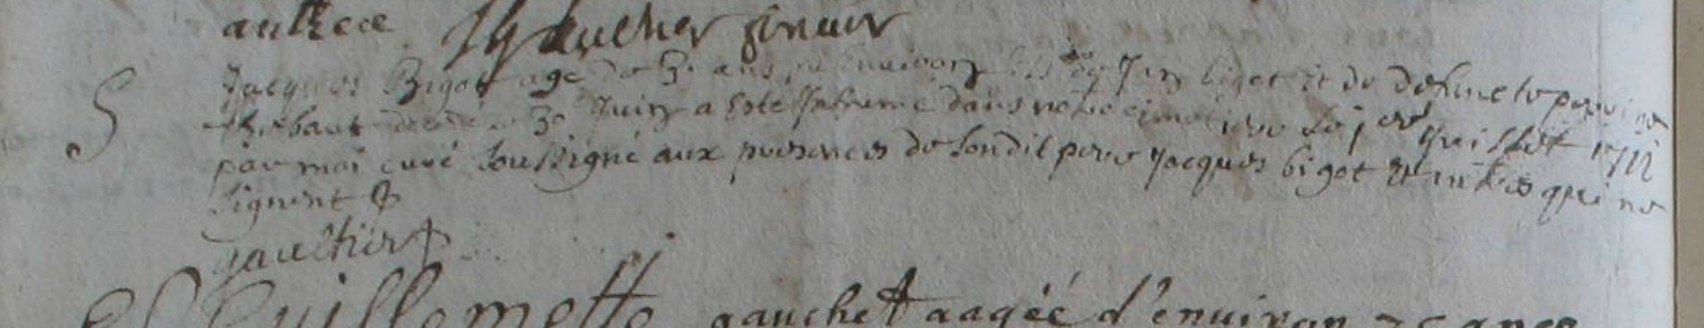 aultre
S Jacques Bigot age de 30 ans ou environ fils de Jan bigot et de defuncte perrine
thebaut decede le 30 Juin a esté Inhumé dans notre cimetiere le jer Juillet 1711
par moi curé soussigné aux presences de sondit pere jacques bigot et autres qui ne
signent
gaultier
Guillemette gauchet aagéé d'enuiron